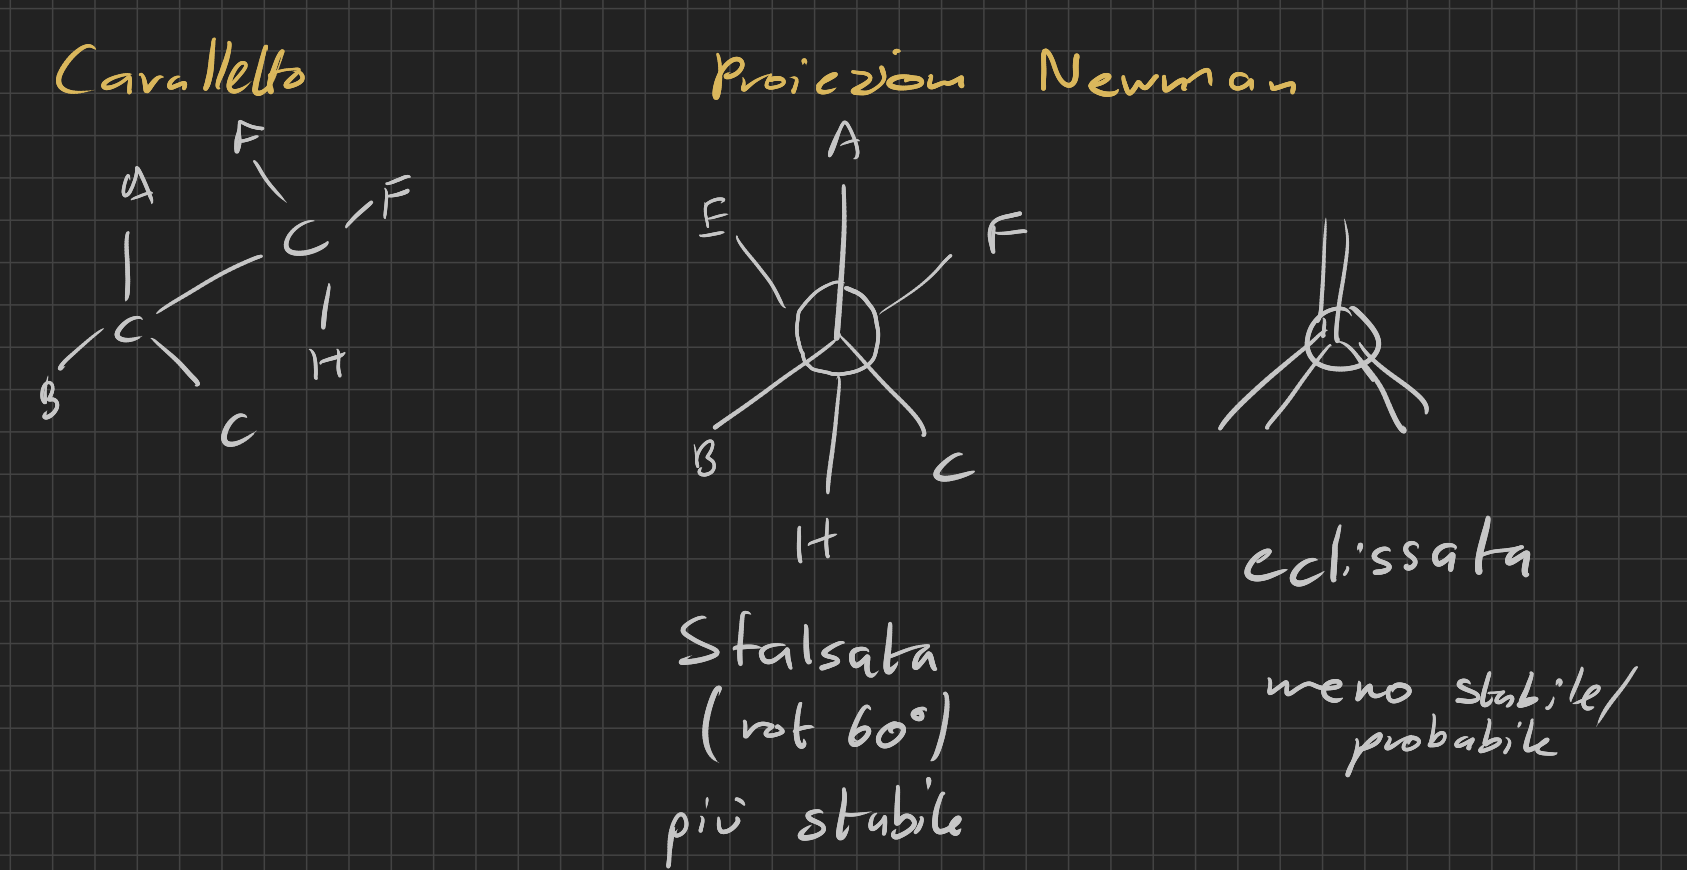 Cavalletto
Proiezion Newman
F
A
F
C
C
H
B
C
A
E
F
B
C
H
Stalsata
(rot 60°)
più stabile
eclissata
meno stabile/
probabile